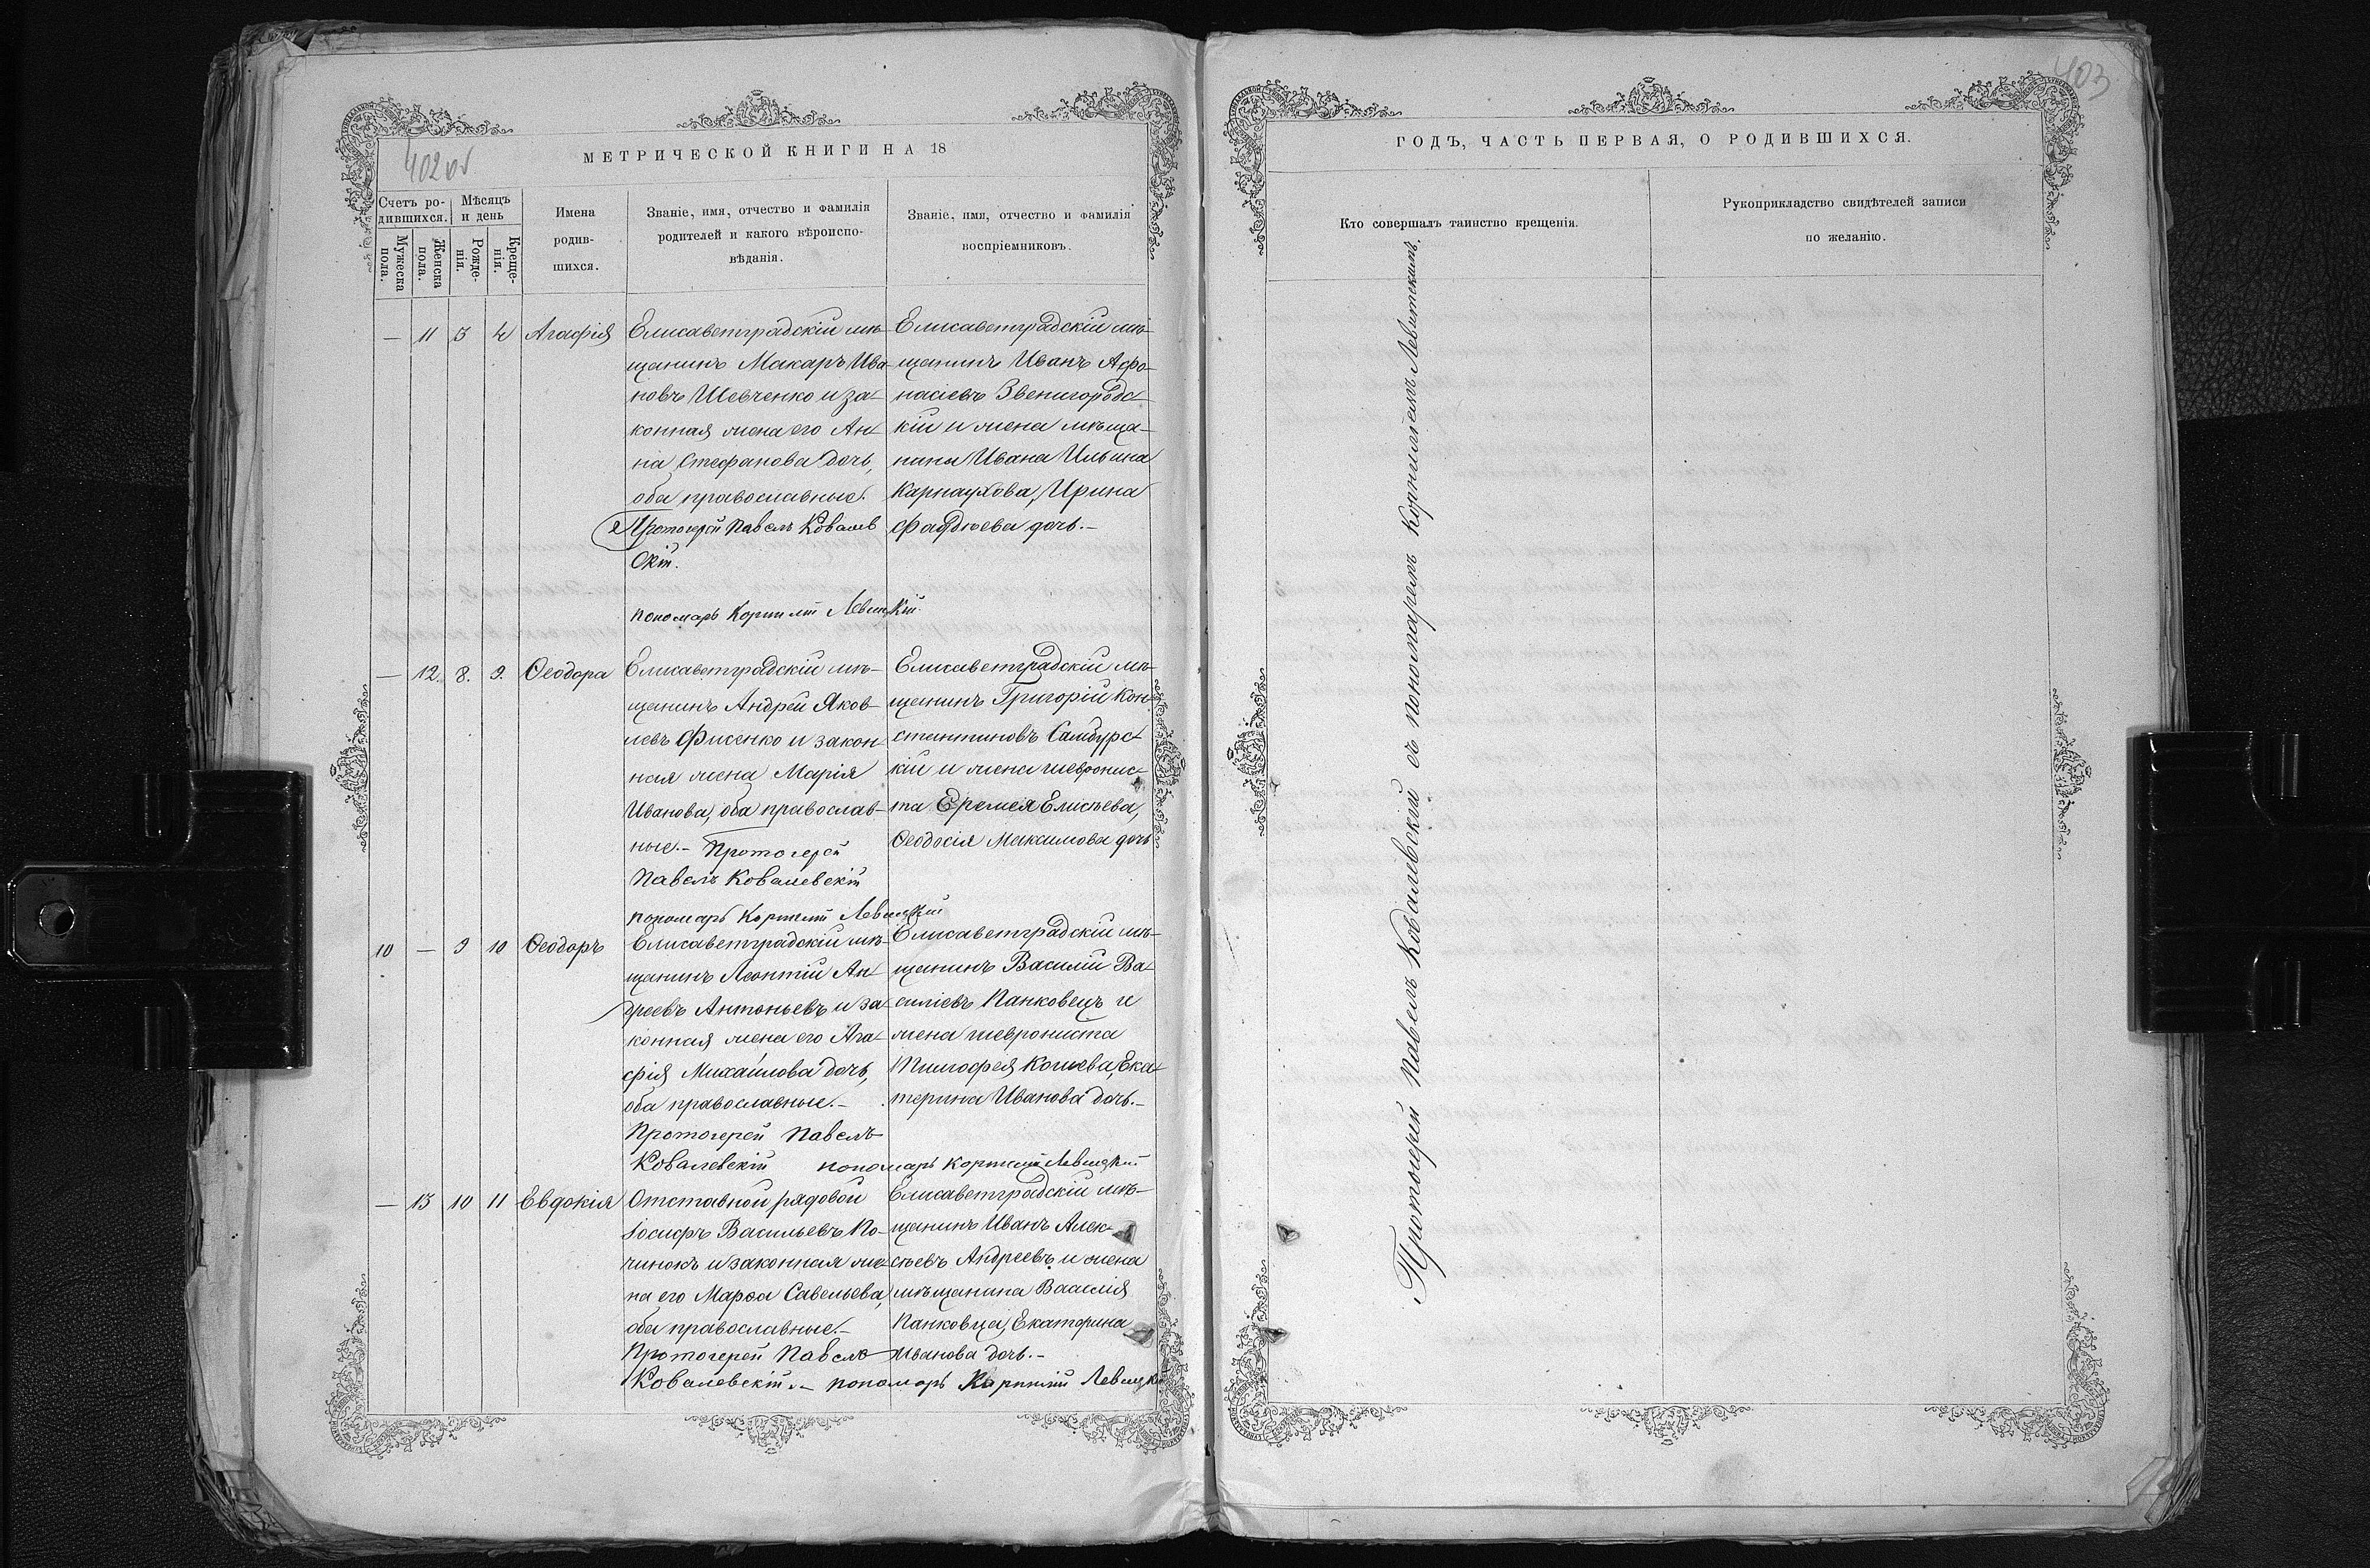 402 об
МЕТРИЧЕСКОЙ КНИГИ НА 18
Счетъ ро-
дившихся.
Мѣсяцъ
и день
Мужеска
пола.
Женска
пола.
Рожде-
нія.
Креще-
нія.
Имена
родив-
шихся.
Званіе, имя, отчество и фамилія
родителей и какого вѣроиспо-
вѣданія.
Званіе, имя, отчество и фамилія
воспріемниковъ.
— 11 3 4 Агафія
Елисаветградскій мѣ-
щанинъ Макаръ Ива-
новъ Шевченко и за-
конная жена его Ан-
на Стефанова дочь,
оба православные.
Протоіерей Павелъ Ковалев
скій.
пономарь Корнилій Левицкій
Елисаветградскій мѣ-
щанинъ Иванъ Афа-
насіевъ Звенигородс-
кій и жена мѣща-
нина Ивана Ильина
Карнаухова, Ирина
Фаддѣева дочь.—
— 12. 8. 9. Ѳеодора
Елисаветградскій мѣ-
щанинъ Андрей Яков-
левъ Фисенко и закон-
ная жена Марія
Иванова, оба православ-
ные.— Протоіерей
Павелъ Ковалевскій
пономарь Корнилій Левицкій
Елисаветградскій мѣ-
щанинъ Григорій Кон-
стантиновъ Самбурс-
кій и жена шевронис-
та Еремея Елисѣева,
Ѳеодосія Максимова дочь
10 — 9 10 Ѳеодоръ
Елисаветградскій мѣ-
щанинъ Леонтій Ан-
дреевъ Антоньевъ и за-
конная жена его Ага-
фія Михайлова дочь,
оба православные.—
Протоіерей Павелъ
Ковалевскій пономарь Корнилій Левицкій
Елисаветградскій мѣ-
щанинъ Василій Ва-
силіевъ Панковецъ и
жена шеврониста
Тимофея Ека-
терина Иванова дочь.—
— 13 10 11 Евдокія
Отставной рядовой
Іосифъ Васильевъ По-
чинокъ и законная же-
на его Марѳа Савельева,
оба православные.—
Протоіерей Павелъ
Ковалевскій.— пономарь Корнилій Левицкій
Елисаветградскій мѣ-
щанинъ Иванъ Алек-
сѣевъ Андреевъ и жена
мѣщанина Василія
Панковца, Екатерина
Иванова дочь.—
403
ГОДЪ, ЧАСТЬ ПЕРВАЯ, О РОДИВШИХСЯ.
Кто совершалъ таинство крещенія.
Рукоприкладство свидѣтелей записи
по желанію.
Протоіерей Павелъ Ковалевскій съ пономаремъ Корниліемъ Левитскимъ.